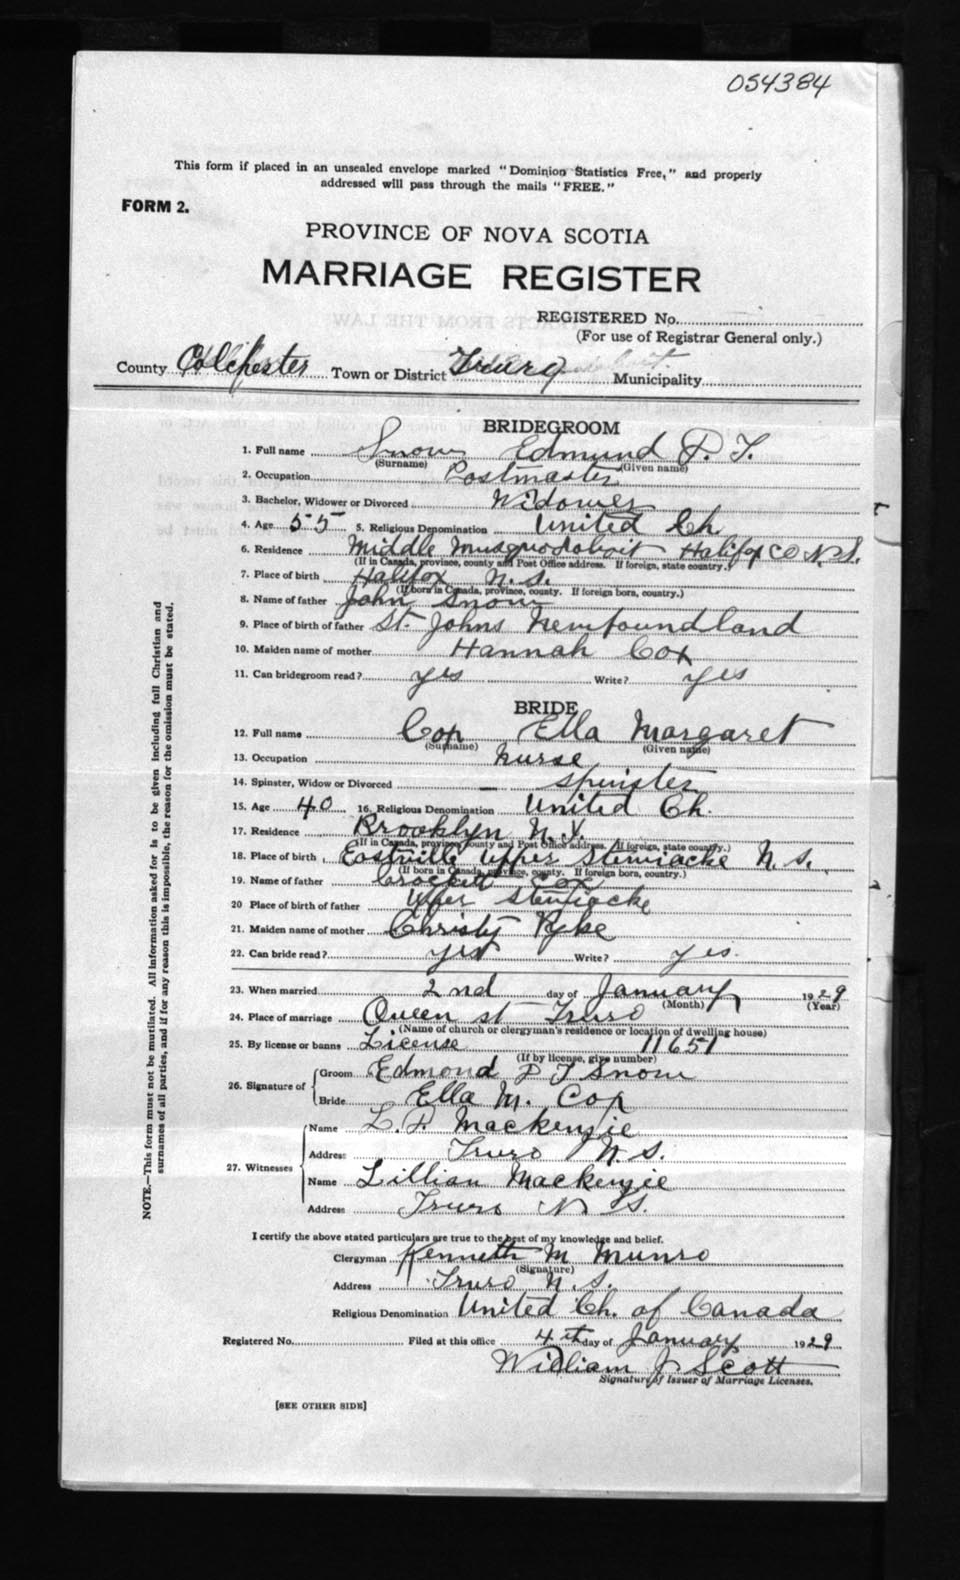 054384
This form if placed in an unsealed envelope marked "Dominion Statistics Free," and properly
addressed will pass through the mails "FREE."
FORM 2.
PROVINCE OF NOVA SCOTIA
MARRIAGE REGISTER
REGISTERED No.
(For use of Registrar General only.)
County Colchester Town or District Truro Municipality
BRIDEGROOM
1. Full name Snow Edmund P. T.
(Surname) (Given name)
2. Occupation Postmaster
3. Bachelor, Widower or Divorced Widower
4. Age 55 5. Religious Denomination United Ch
6. Residence Middle Musquodoboit Halifax Co N.S.
(If in Canada, province, county and Post Office address. If foreign, state country.)
7. Place of birth Halifax N.S.
(If born in Canada, province, county. If foreign born, country.)
8. Name of father John Snow
9. Place of birth of father St. Johns Newfoundland
10. Maiden name of mother Hannah Cox
11. Can bridegroom read? yes Write? yes
BRIDE
12. Full name Cox Ella Margaret
(Surname) (Given name)
13. Occupation Nurse
14. Spinster, Widow or Divorced — Spinster
15. Age 40 16. Religious Denomination United Ch.
17. Residence Brooklyn N.Y.
(If in Canada, province, county and Post Office address. If foreign, state country.)
18. Place of birth Eastville Upper Stewiacke N.S.
(If born in Canada, province, county. If foreign born, country.)
19. Name of father Crockett Cox
20 Place of birth of father Upper Stewiacke
21. Maiden name of mother Christy
22. Can bride read? yes Write? yes.
23. When married 2nd day of January 1929
(Month) (Year)
24. Place of marriage Queen St Truro
(Name of church or clergyman's residence or location of dwelling house)
25. By license or banns License 11651
(If by license, give number)
26. Signature of Groom Edmond P T Snow
Bride Ella M. Cox
27. Witnesses Name Mackenzie
Address Truro N.S.
Name Lillian Mackenzie
Address Truro N S.
I certify the above stated particulars are true to the best of my knowledge and belief.
Clergyman Kenneth M Munro
(Signature)
Address Truro N.S.
Religious Denomination United Ch. of Canada
Registered No. Filed at this office 4th day of January 1929
William J Scott
Signature of Issuer of Marriage Licenses.
[SEE OTHER SIDE]
NOTE.—This form must not be mutilated. All information asked for is to be given including full Christian and
surnames of all parties, and if for any reason this is impossible, the reason for the omission must be stated.